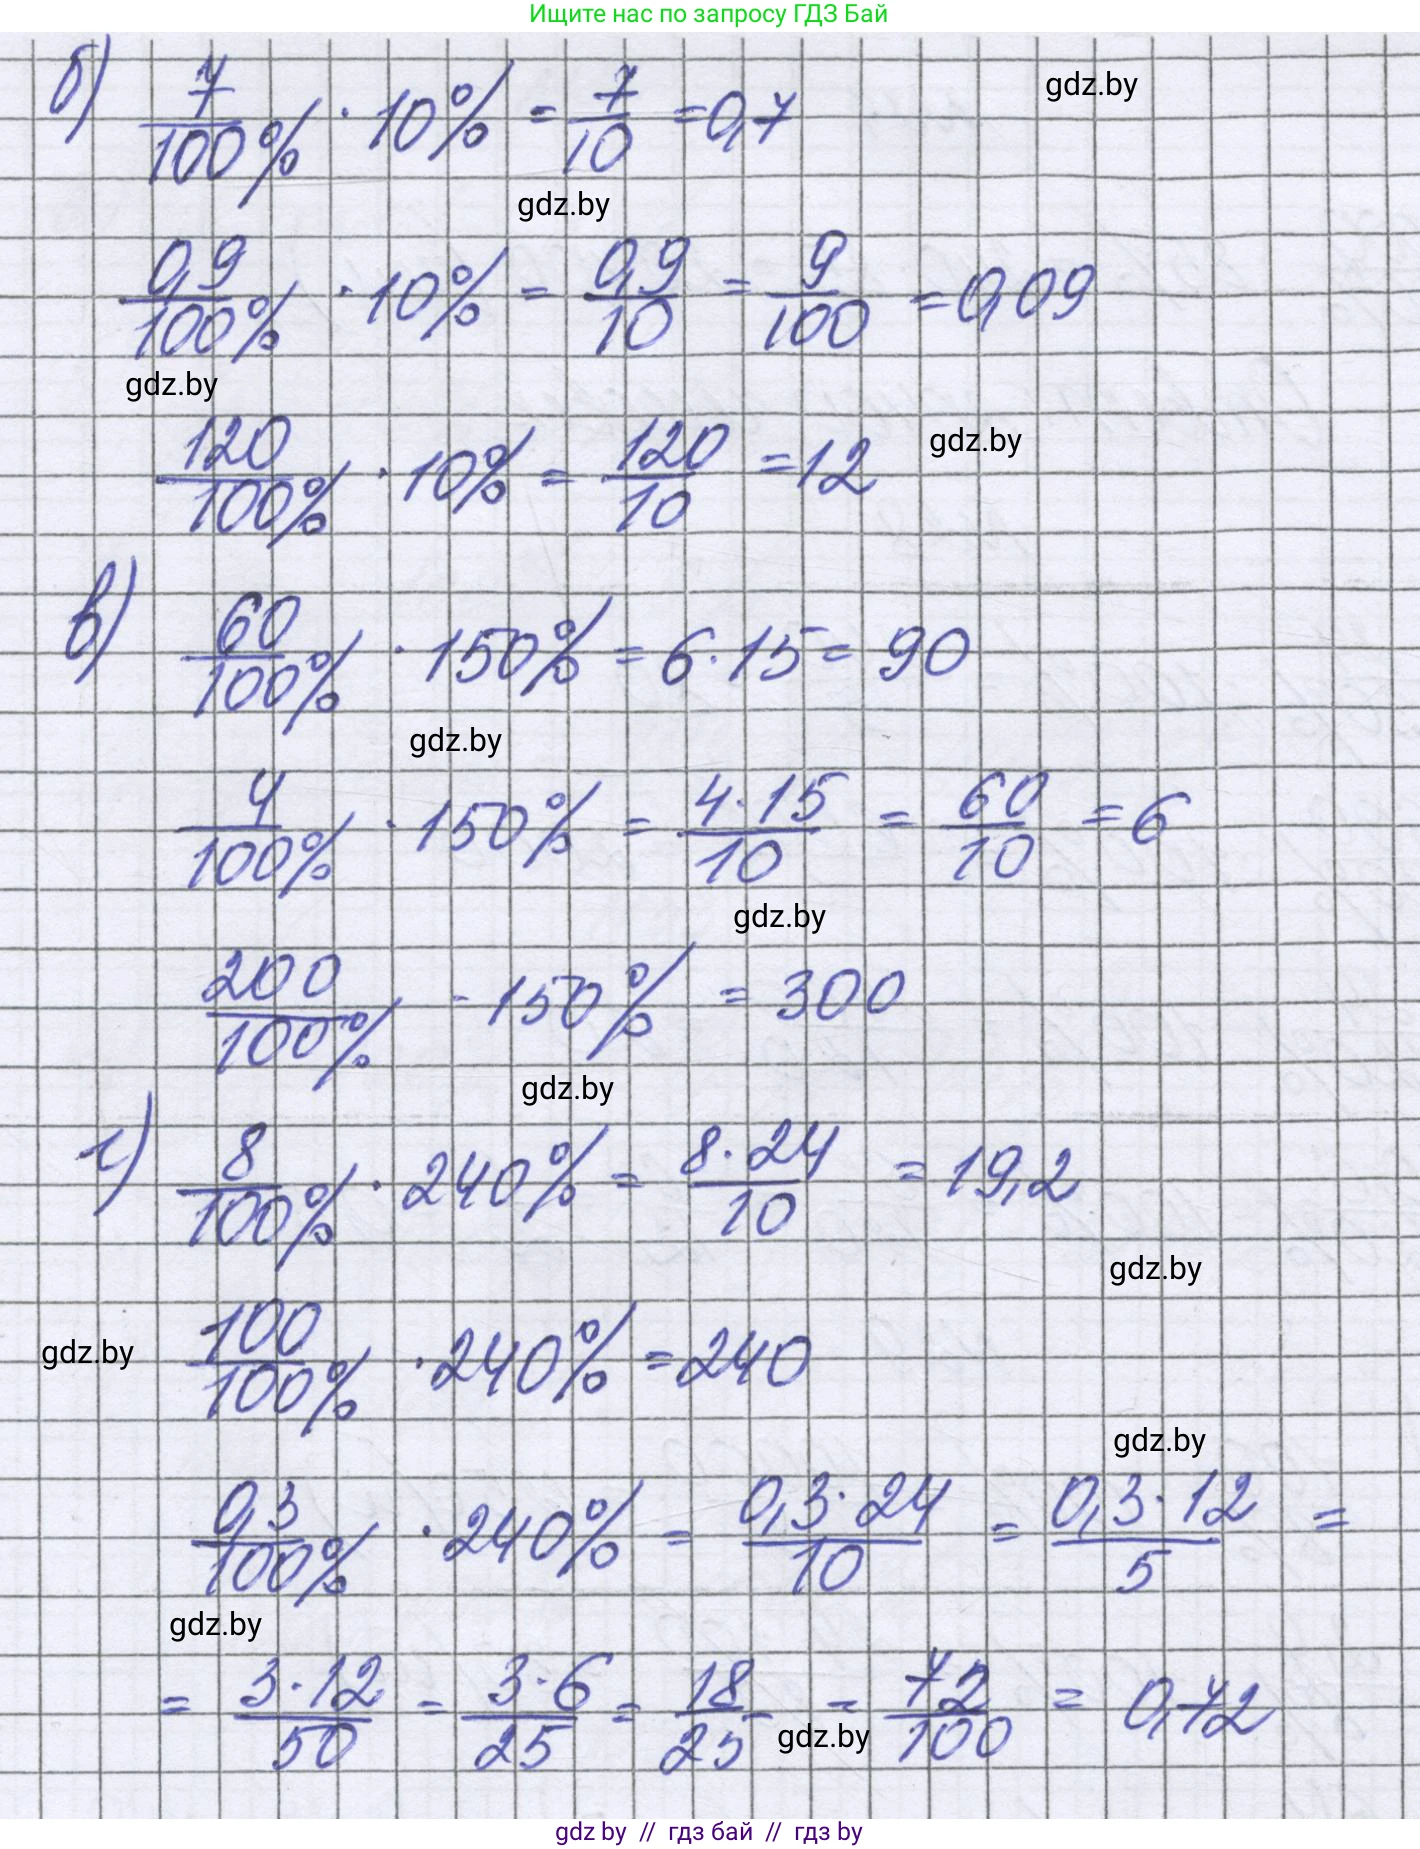 Ищите нас по запросу ГДЗ Бай
б) 7/100% · 10% = 7/10 = 0,7
gdz.by
gdz.by
0,9/100% · 10% = 0,9/10 = 9/100 = 0,09
gdz.by
120/100% · 10% = 120/10 = 12
gdz.by
в) 60/100% · 150% = 6 · 15 = 90
gdz.by
4/100% · 150% = 4 · 15/10 = 60/10 = 6
gdz.by
200/100% - 150% = 300
gdz.by
г) 8/100% · 240% = 8 · 24/10 = 19,2
gdz.by
100/100% · 240% = 240
gdz.by
gdz.by
0,3/100% · 240% = 0,3 · 24/10 = 0,3 · 12/5 =
gdz.by
= 3 · 12/50 = 3 · 6/25 = 18/25 = 72/100 = 0,72
gdz.by
gdz by // гдз бай // гдз by